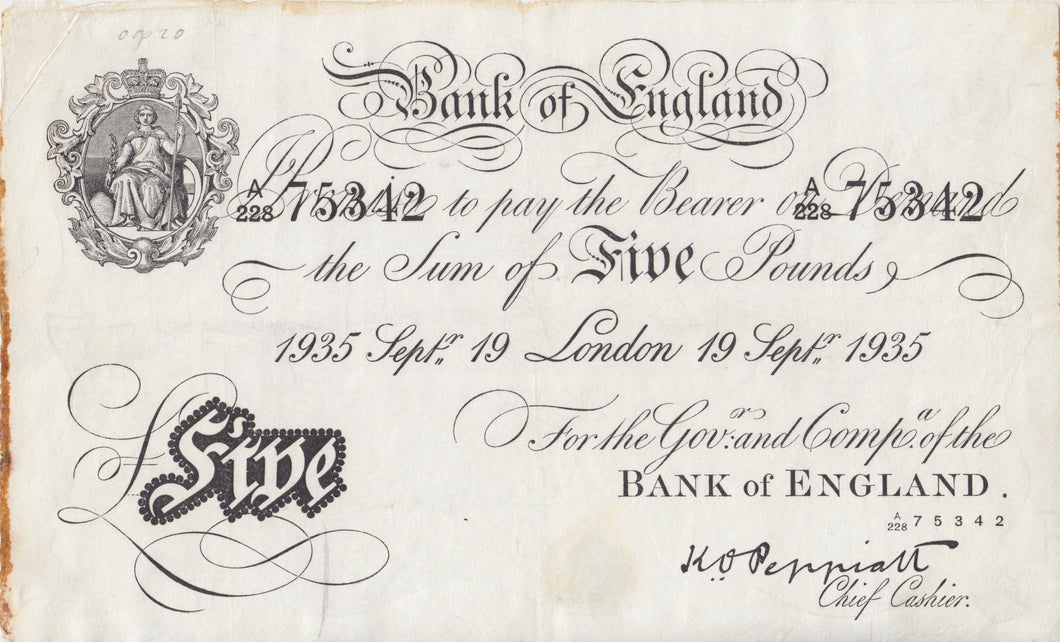 0920
Bank of England
I Promise to pay the Bearer on Demand
A/228 75342 A/228 75342
the Sum of Five Pounds
1935 Septr 19 London 19 Septr 1935
For the Govr: and Compa. of the
BANK of ENGLAND.
A/228 75342
£ Five
K O Peppiatt
Chief Cashier.